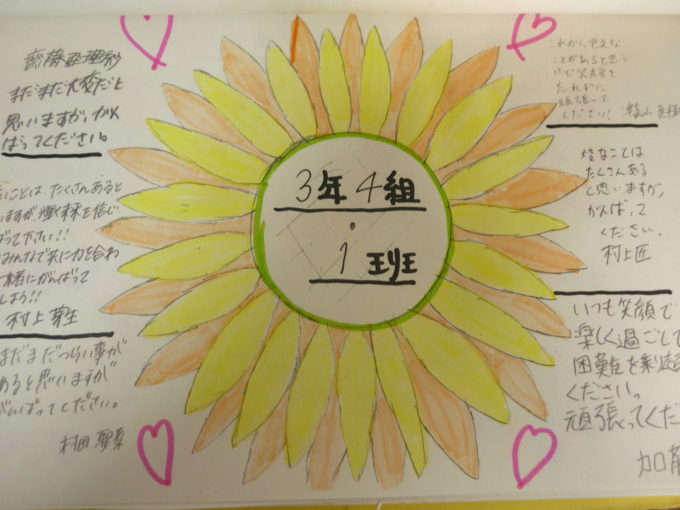 齋藤亜理紗
まだまだ大変だと
思いますが、がん
ばってください。
ことは たくさんあると
いますが を信じ
ばって下さい!!
みんなで共に力を合わ
緒にがんばって
しょう!!
村上 芽生
まだまだつらい事が
あると思いますが
がんばってください。
村田 聖菜
3年4組
1班
これから色々な
ことがあると思う
けで笑顔を
たやさずに
頑張って
ください!
なことは
たくさんある
と思いますが、
がんばって
ください。
村上匠
いつも笑顔で
楽しく過ごして
困難を乗り越
ください。
頑張ってくだ
加